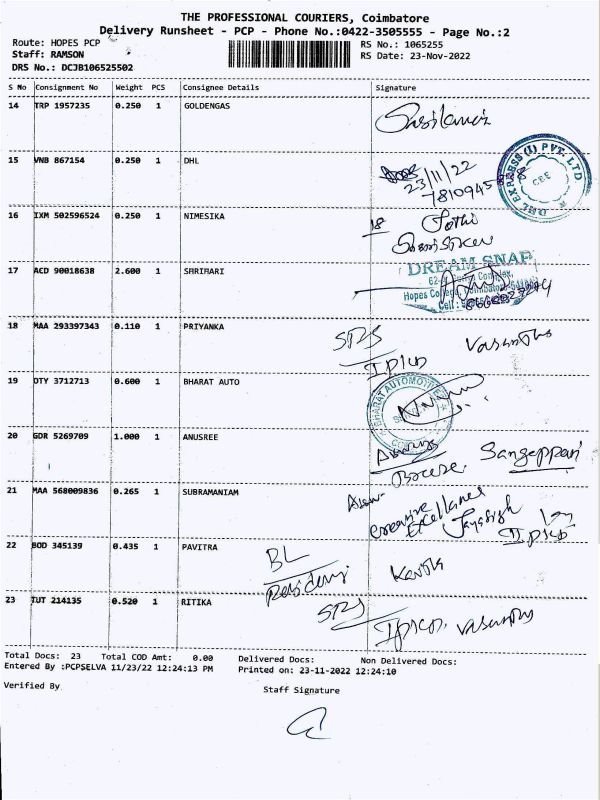 THE PROFESSIONAL COURIERS, Coimbatore
Delivery Runsheet - PCP - Phone No.:0422-3505555 - Page No.:2
Route: HOPES PCP
RS No.: 1065255
Staff: RAMSON
RS Date: 23-Nov-2022
DRS No.: DCJB106525502
S No Consignment No Weight PCS Consignee Details Signature
14 TRP 1957235 0.250 1 GOLDENGAS
15 VNB 867154 0.250 1 DHL
23/11/22
DHL EXPRESS (I) PVT. LTD
CBE
16 IXM 502596524 0.250 1 NIMESIKA
18 Jothi
17 ACD 90018638 2.600 1 SHRIHARI
DREAM SNAP
18 MAA 293397343 0.110 1 PRIYANKA
Vasantha
19 DTY 3712713 0.600 1 BHARAT AUTO
BHARAT AUTOMOTIVE
20 GDR 5269709 1.000 1 ANUSREE
21 MAA 568009836 0.265 1 SUBRAMANIAM
creative
Excellance
22 BOD 345139 0.435 1 PAVITRA
BL
23 TUT 214135 0.520 1 RITIKA
Vasantha
Total Docs: 23 Total COD Amt: 0.00 Delivered Docs: Non Delivered Docs:
Entered By :PCPSELVA 11/23/22 12:24:13 PM Printed on: 23-11-2022 12:24:10
Verified By
Staff Signature